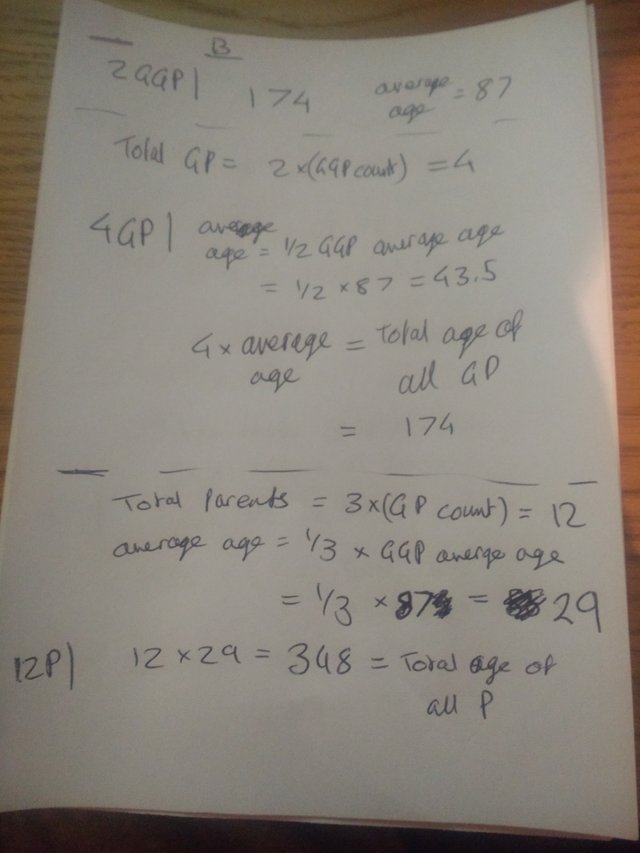 B
2GGP| 174 average age = 87
Total GP = 2×(GGP count) = 4
4GP| average
age = 1/2 GGP average age
= 1/2 × 87 = 43.5
4 × average age = Total age of all GP
= 174
Total Parents = 3×(GP count) = 12
average age = 1/3 × GGP averge age
= 1/3 × 87 = 29
12P| 12 × 29 = 348 = Total age of all P